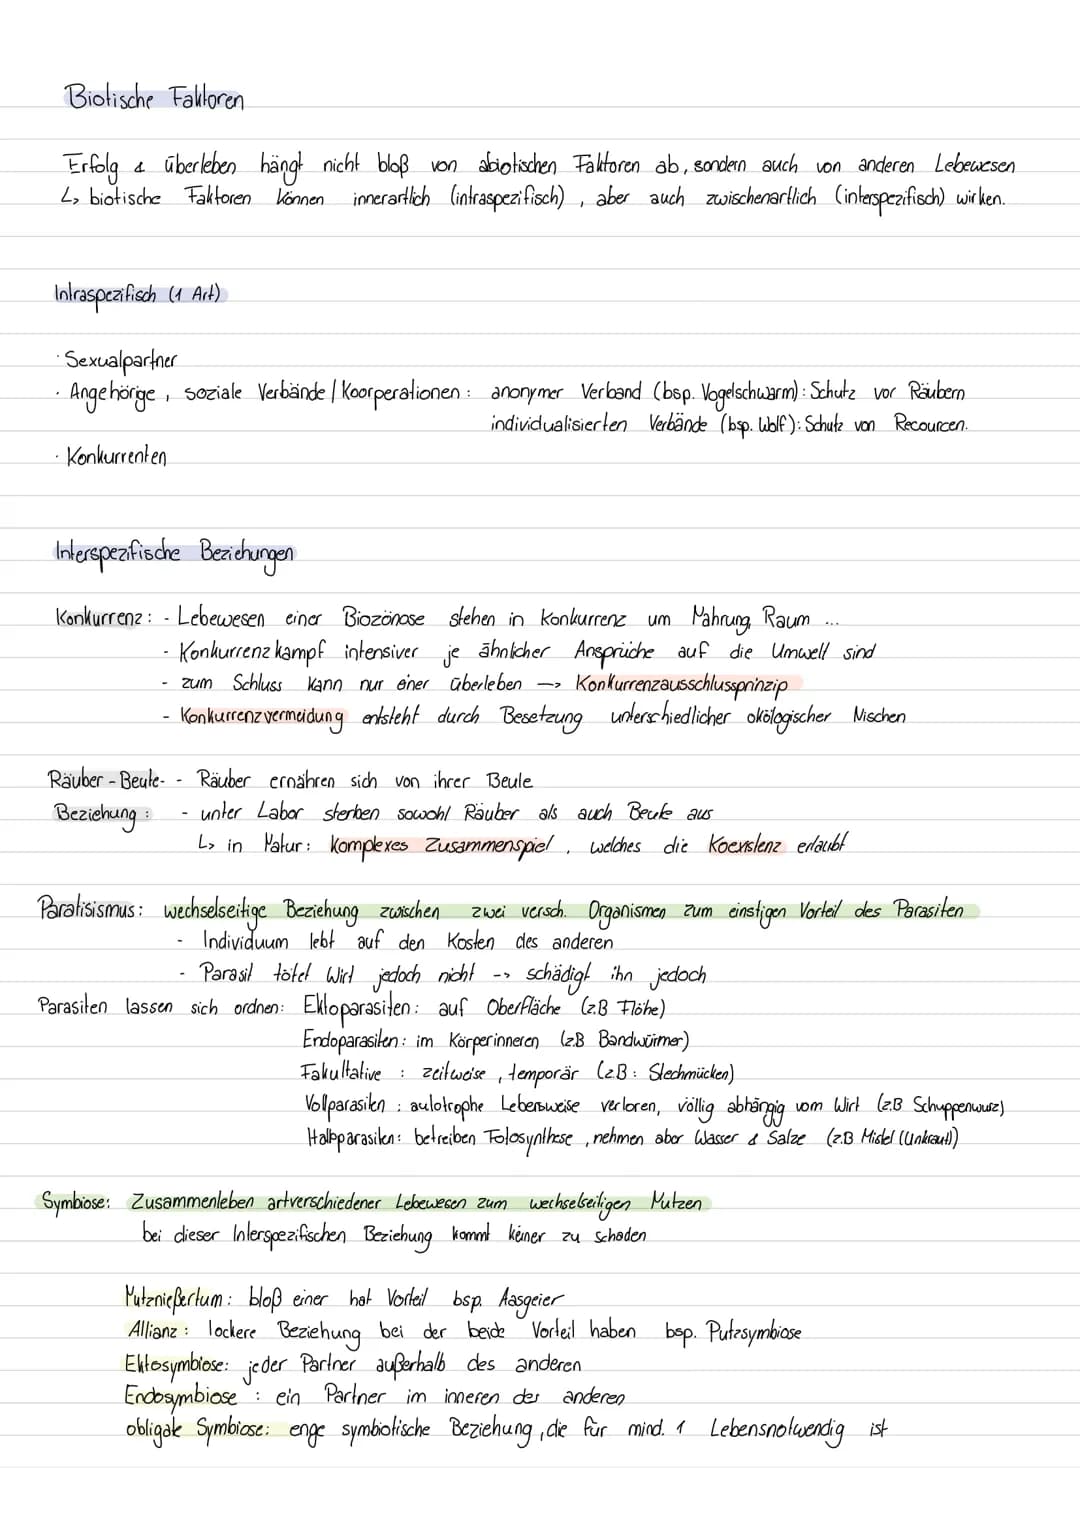 Biotische Faktoren
Erfolg & überleben hängt nicht bloß von abiotischen Faktoren ab, sondern auch von anderen Lebewesen
↳ biotische Faktoren können innerartlich (intraspezifisch), aber auch zwischenartlich (interspezifisch) wirken.
Intraspezifisch (1 Art)
· Sexualpartner
· Angehörige, soziale Verbände/Koorperationen: anonymer Verband (bsp. Vogelschwarm): Schutz vor Räubern
individualisierten Verbände (bsp. Wolf): Schutz von Recourcen.
· Konkurrenten
Interspezifische Beziehungen
Konkurrenz: - Lebewesen einer Biozönose stehen in Konkurrenz um Nahrung, Raum ...
- Konkurrenzkampf intensiver je ähnlicher Ansprüche auf die Umwelt sind
- zum Schluss kann nur einer überleben --> Konkurrenzausschlussprinzip
- Konkurrenzvermeidung entsteht durch Besetzung unterschiedlicher ökologischer Nischen
Räuber-Beute- - Räuber ernähren sich von ihrer Beute
Beziehung: - unter Labor sterben sowohl Räuber als auch Beute aus
↳ in Natur: komplexes Zusammenspiel, welches die Koexistenz erlaubt
Paratisismus: wechselseitige Beziehung zwischen zwei versch. Organismen zum einstigen Vorteil des Parasiten
- Individuum lebt auf den Kosten des anderen
- Parasit tötet Wirt jedoch nicht --> schädigt ihn jedoch
Parasiten lassen sich ordnen: Ektoparasiten: auf Oberfläche (z.B Flöhe)
Endoparasiten: im Körperinneren (z.B Bandwürmer)
Fakultative : zeitweise, temporär (z.B: Stechmücken)
Vollparasiten: autotrophe Lebensweise verloren, völlig abhängig vom Wirt (z.B Schuppenwurz)
Halbparasiten: betreiben Fotosynthese, nehmen aber Wasser & Salze (z.B Mistel (Unkraut))
Symbiose: Zusammenleben artverschiedener Lebewesen zum wechselseitigen Nutzen
bei dieser Interspezifischen Beziehung kommt keiner zu schaden
Nutznießertum: bloß einer hat Vorteil bsp. Aasgeier
Allianz: lockere Beziehung bei der beide Vorteil haben bsp. Putzsymbiose
Ektosymbiose: jeder Partner außerhalb des anderen
Endosymbiose : ein Partner im inneren des anderen
obligate Symbiose: enge symbiotische Beziehung, die für mind. 1 Lebensnotwendig ist